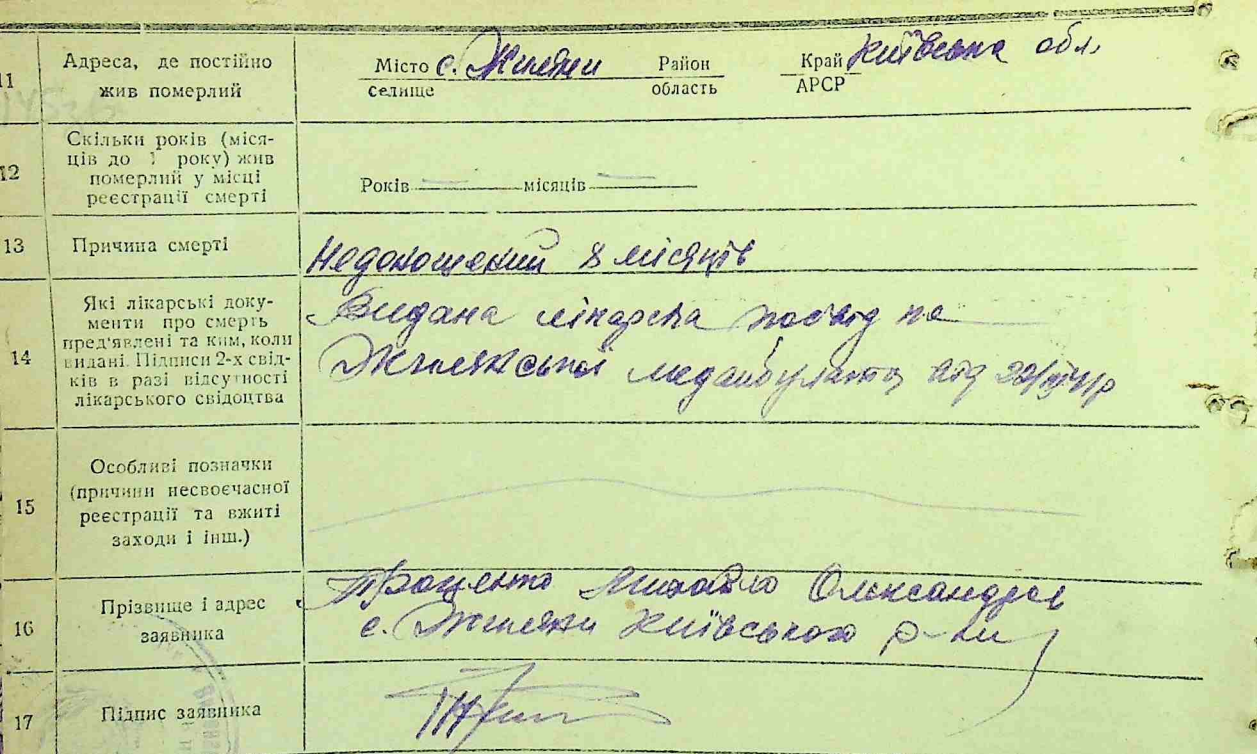 11
Адреса, де постійно
жив померлий
Місто с. Жиляни Район Край Київська обл.
селище область АРСР
12
Скільки років (міся-
ців до 1 року) жив
померлий у місці
реєстрації смерті
Років — місяців —
13
Причина смерті
Недоношений 8 місяців
14
Які лікарські доку-
менти про смерть
пред'явлені та ким, коли
видані. Підписи 2-х свід-
ків в разі відсутності
лікарського свідоцтва
Видана лікарська
Жилянської від
15
Особливі позначки
(причини несвоєчасної
реєстрації та вжиті
заходи і інш.)
16
Прізвище і адрес
заявника
Троценко Михайло Олександров
с. Жиляни Київського р-ну
17
Підпис заявника